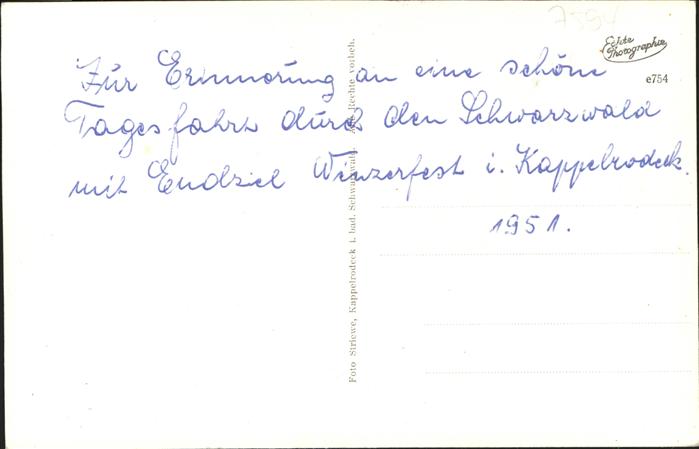 7594
Echte
Photographie
e754
Zur Erinnerung an eine schöne
Tagesfahrt durch den Schwarzwald
mit Endziel Winzerfest i. Kappelrodeck.
1951.
Foto Striewe, Kappelrodeck i. bad. Schwarzwald. Alle Rechte vorbeh.